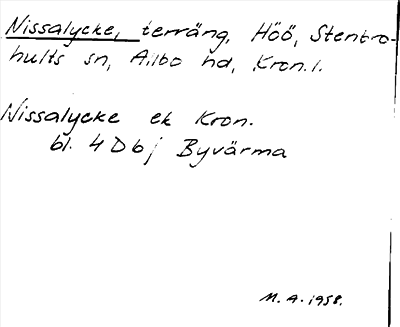 Nissalycke, terräng, Höö, Stenbro-
hults sn, Allbo hd, Kron. l.
Nissalycke ek Kron.
bl. 4 D b j Byvärma
M. A. 1958.